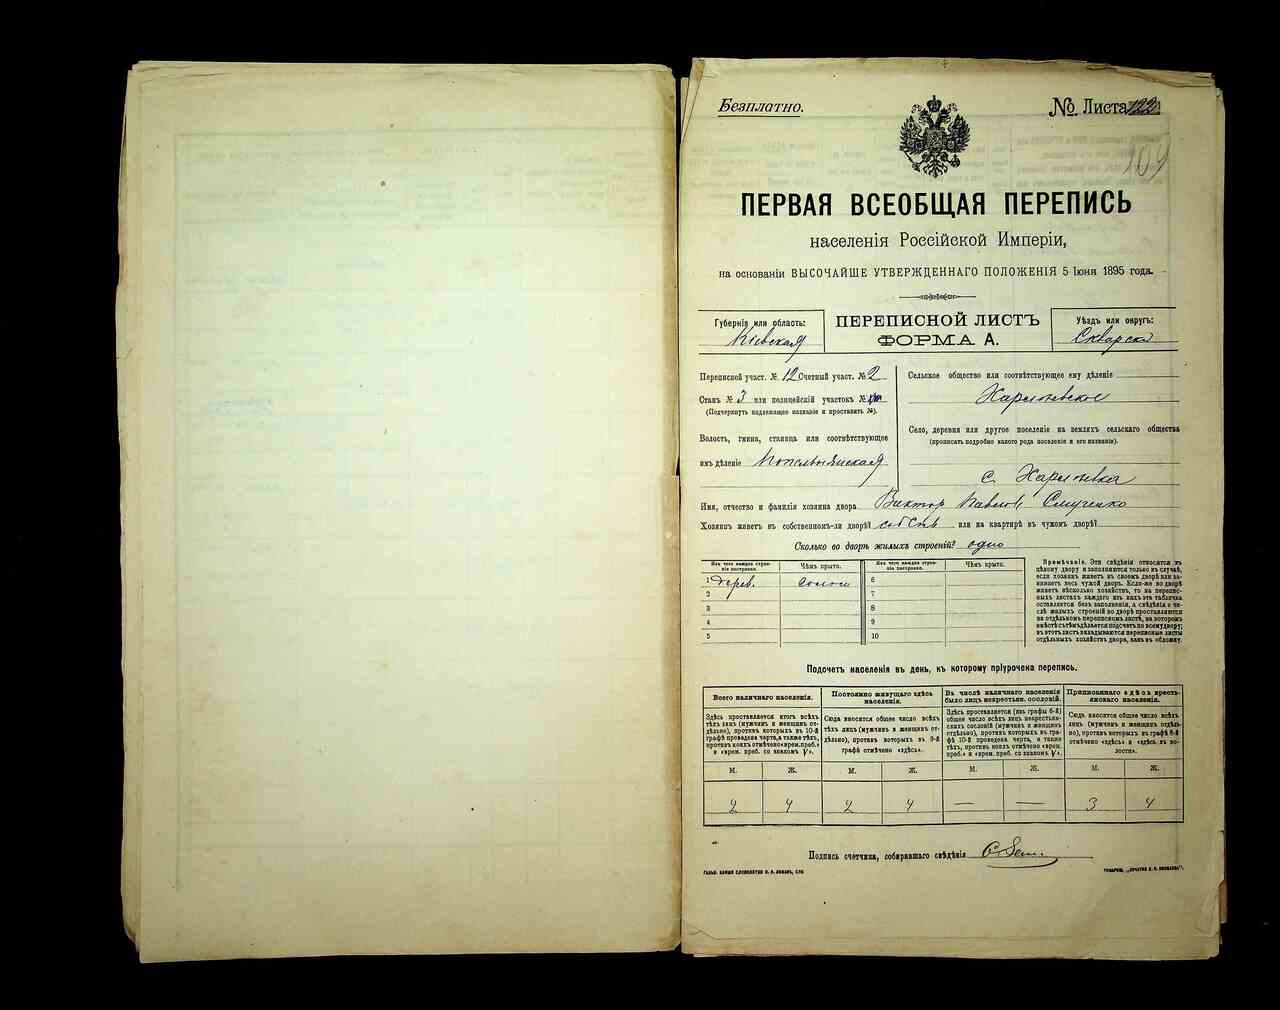 Безплатно.
№ Листа 122
109
ПЕРВАЯ ВСЕОБЩАЯ ПЕРЕПИСЬ
населенія Россійской Имперіи,
на основаніи ВЫСОЧАЙШЕ УТВЕРЖДЕННАГО ПОЛОЖЕНІЯ 5 Іюня 1895 года.
Губернія или область:
Кіевская
ПЕРЕПИСНОЙ ЛИСТЪ
ФОРМА А.
Уѣздъ или округъ:
Сквирскій
Переписной участ. № 12 Счетный участ. № 2
Станъ № 3 или полицейскій участокъ №
(Подчеркнуть подлежащее названіе и проставить №).
Волость, гмина, станица или соотвѣтствующее
имъ дѣленіе
Сельское общество или соотвѣтствующее ему дѣленіе
Село, деревня или другое поселеніе на земляхъ сельскаго общества
(прописать подробно какого рода поселеніе и его названіе).
с.
Имя, отчество и фамилія хозяина двора Виктор Павлов
Хозяинъ живетъ въ собственномъ-ли дворѣ? или на квартирѣ въ чужом дворѣ?
Сколько во дворѣ жилыхъ строеній? одно
Изъ чего каждое строеніе построено.
Чѣмъ крыто.
Изъ чего каждое строеніе построено.
Чѣмъ крыто.
1 дерев. солом
2
3
4
5
6
7
8
9
10
Примѣчаніе. Эти свѣдѣнія относятся къ
цѣлому двору и заполняются только въ случаѣ,
если хозяин живетъ въ своемъ дворѣ или за-
нимаетъ весь чужой дворъ. Если-же во дворѣ
живетъ нѣсколько хозяйствъ, то на перепис-
ныхъ листахъ каждаго изъ нихъ эта табличка
оставляется безъ заполненія, а свѣдѣнія о чи-
слѣ жилыхъ строеній во дворѣ проставляются
на отдѣльномъ переписномъ листѣ, на которомъ
вмѣстѣ съ тѣмъ дѣлается подсчетъ по всему двору;
въ этотъ листъ вкладываются переписные листы
отдѣльныхъ хозяйствъ двора, какъ въ обложку.
Подсчетъ населенія въ день, къ которому пріурочена перепись.
Всего наличнаго населенія.
Здѣсь проставляется итогъ всѣхъ
тѣхъ лицъ (мужчин и женщин от-
дѣльно), против которыхъ въ 10-й
графѣ проведена черта, а также тѣхъ,
против коихъ отмѣчено «врем. преб.»
и «врем. преб. со знаком V».
Постоянно живущаго здѣсь
населенія.
Сюда вносится общее число всѣхъ
тѣхъ лицъ (мужчин и женщин от-
дѣльно), против которыхъ въ 9-й
графѣ отмѣчено «здѣсь».
Въ числѣ наличнаго населенія
было лицъ некрестьян. сословій.
Здѣсь проставляется (изъ графы 6-й)
общее число всѣхъ лицъ некрестьян-
скихъ сословій (мужчин и женщин
отдѣльно), против которыхъ въ гра-
фѣ 10-й проведена черта, а также
тѣхъ, против коихъ отмѣчено «врем.
преб.» и «врем. преб. со знаком V».
Приписаннаго здѣсь кресть-
янскаго населенія.
Сюда вносится общее число всѣхъ
лицъ (мужчин и женщин отдѣль-
но), против которыхъ въ графѣ 8-й
отмѣчено «здѣсь» и «здѣсь въ во-
лости».
М. Ж. М. Ж. М. Ж. М. Ж.
2 4 2 4 — — 3 4
Подпись счетчика, собиравшаго свѣдѣнія